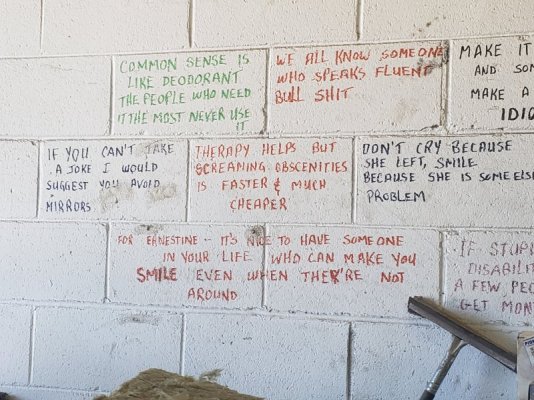 COMMON SENSE IS
LIKE DEODORANT
THE PEOPLE WHO NEED
IT THE MOST NEVER USE
IT
WE ALL KNOW SOMEONE
WHO SPEAKS FLUENT
BULL SHIT
MAKE IT
AND SOM
MAKE A
IDIO
IF YOU CAN'T TAKE
A JOKE I WOULD
SUGGEST YOU AVOID
MIRRORS
THERAPY HELPS BUT
SCREAMING OBSCENITIES
IS FASTER & MUCH
CHEAPER
DON'T CRY BECAUSE
SHE LEFT, SMILE
BECAUSE SHE IS SOMEELSE
PROBLEM
FOR EARNESTINE - IT'S NICE TO HAVE SOMEONE
IN YOUR LIFE WHO CAN MAKE YOU
SMILE EVEN WHEN THEY'RE NOT
AROUND
IF STUPI
DISABILIT
A FEW PEO
GET MONT